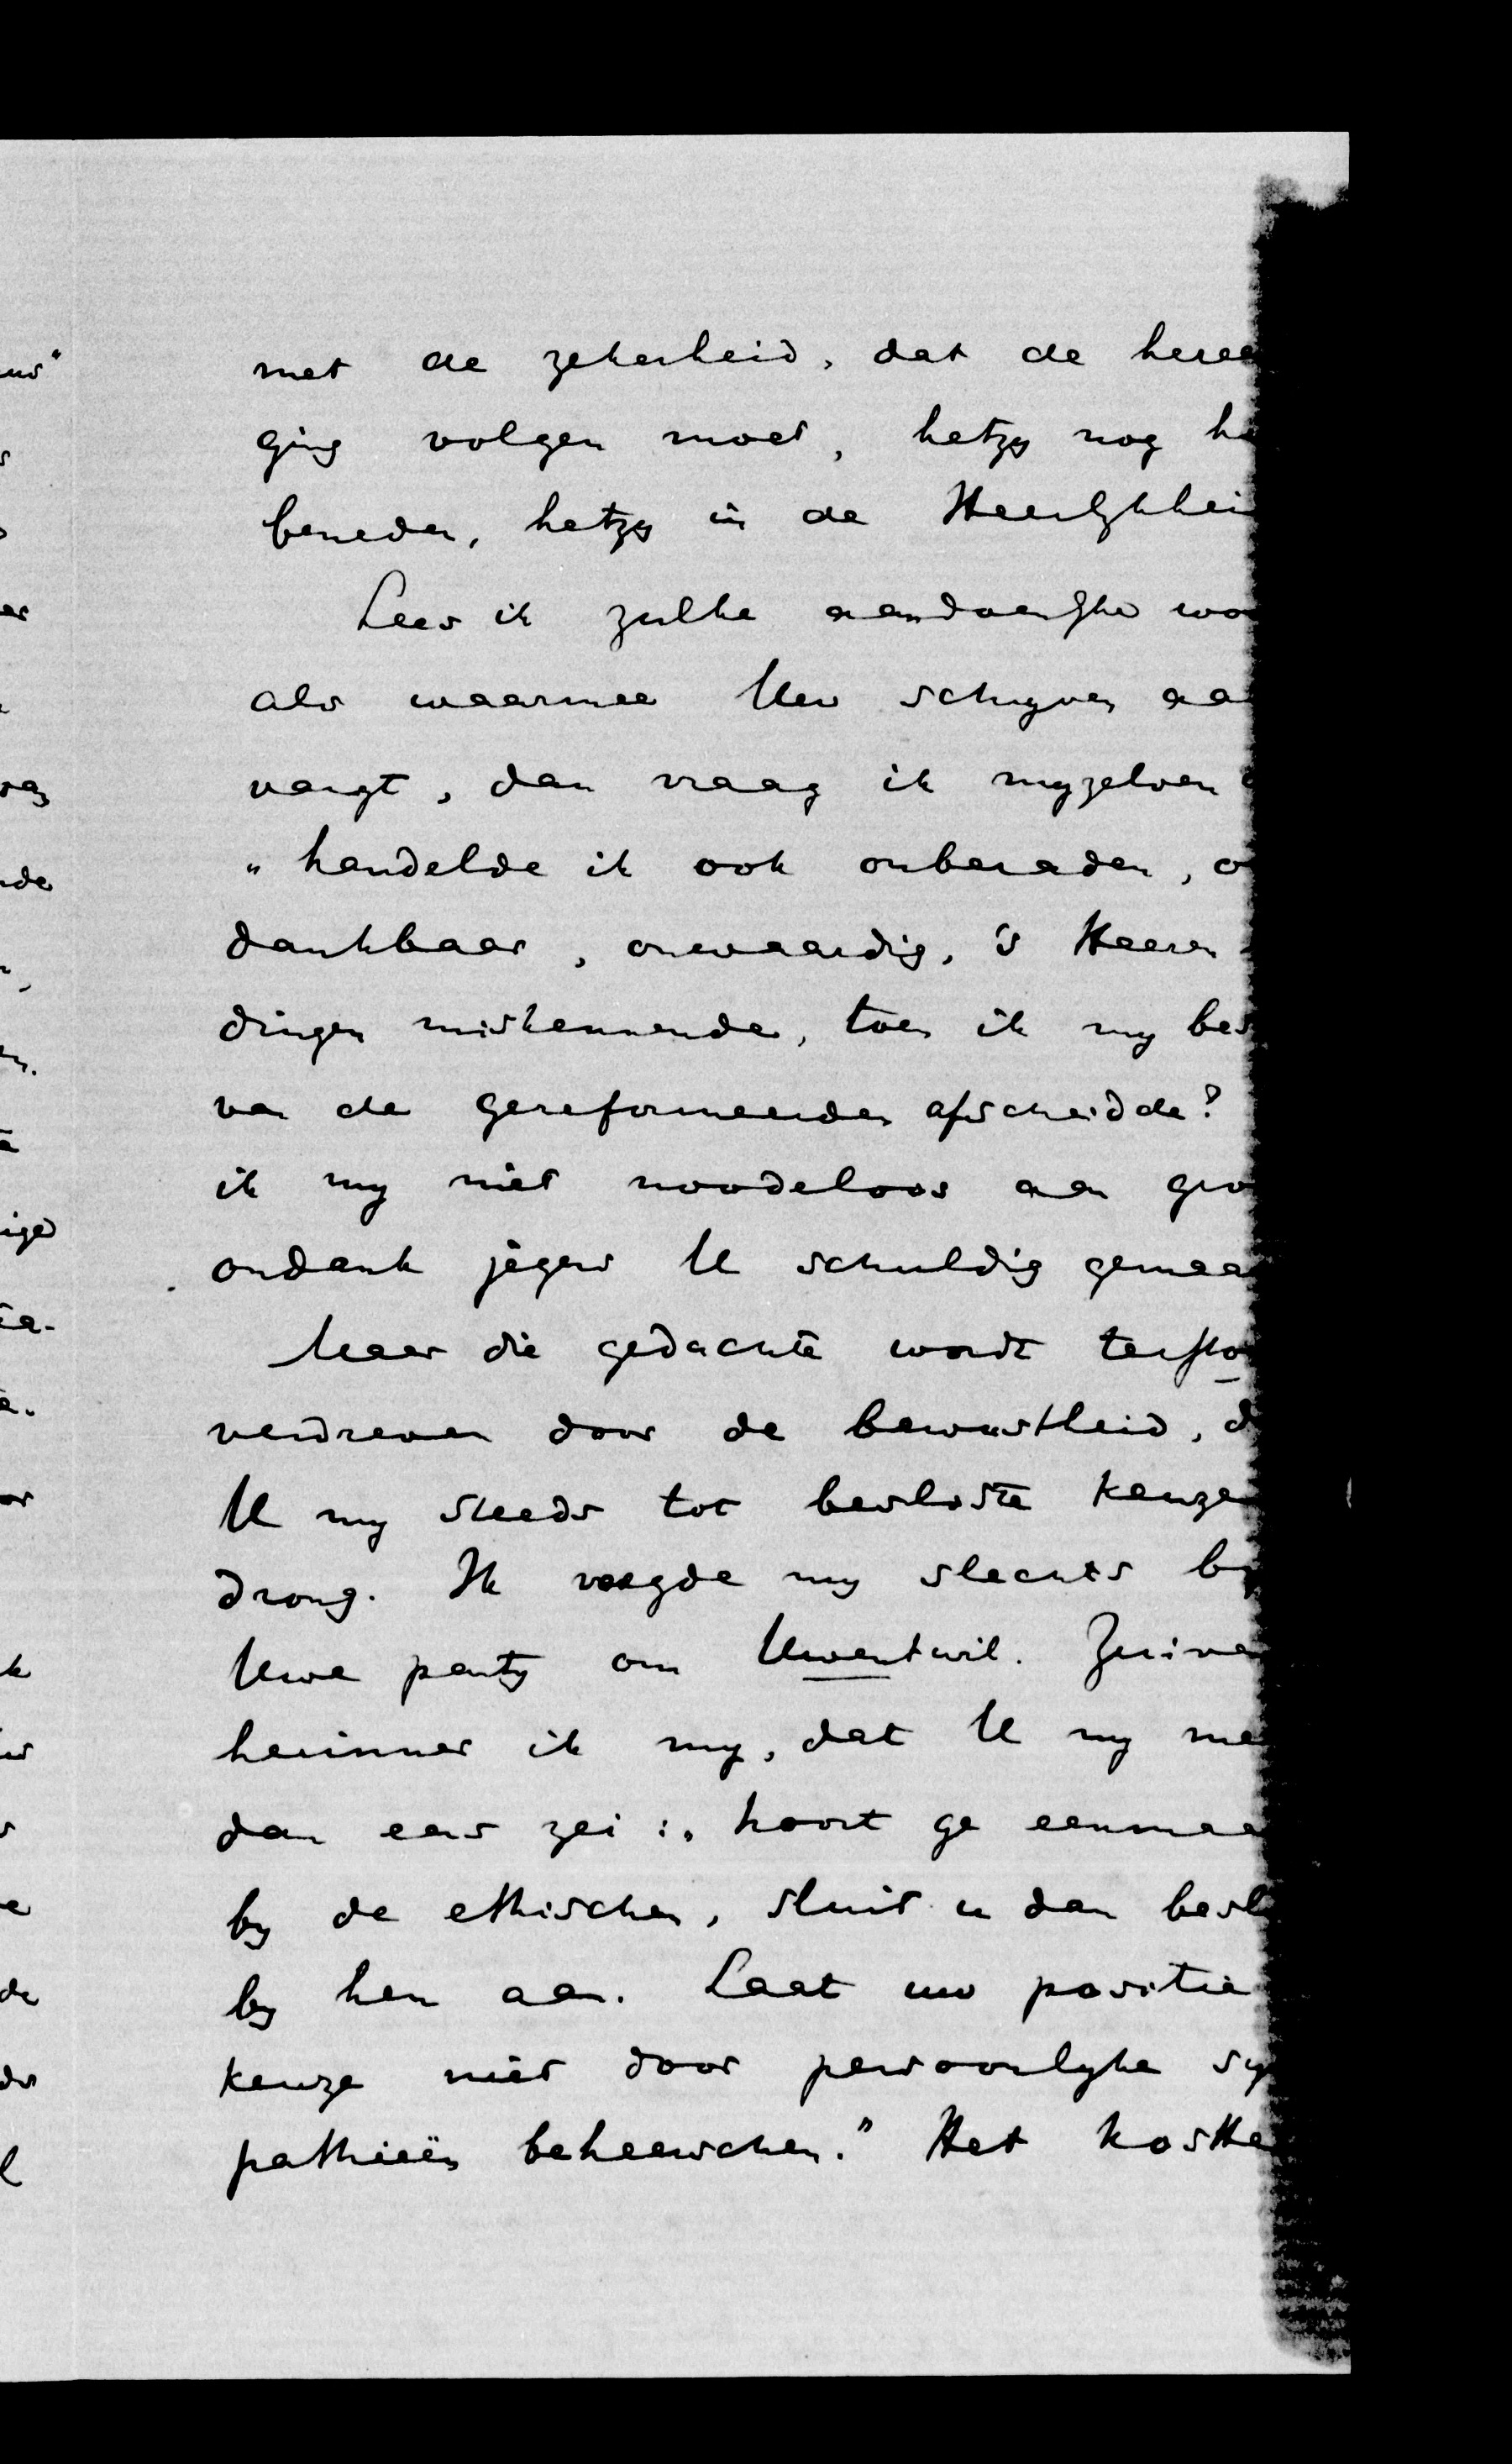 met de zekerheid, dat de heree
ging volgen moet, hetzy nog h
beneden, hetzy in de Heerlykhei
Lees ik zulke aandoenlyke wo
als waarmee Uw schryven aa
vangt, dan vraag ik myzelven
"handelde ik ook onberaden, o
dankbaar, onwaardig, 's Heeren
dingen miskennende, toen ik my bes
van de gereformeerden afscheidde?
ik my niet noodeloos aan gro
ondank jegens U schuldig gemaa
Maar die gedachte wordt terfto
verdreven door de bewustheid, d
U my steeds tot besliste keuze
drong. Ik voegde my slechts by
Uwe party om Uwentwil. Zuive
herinner ik my, dat U my me
dan eens zei: „hoort ge eenmaa
by de ethischen, sluit u dan besl
by hen aan. Laat uw positie
keuze niet door persoonlyke sy
pathieën beheerschen." Het kostte